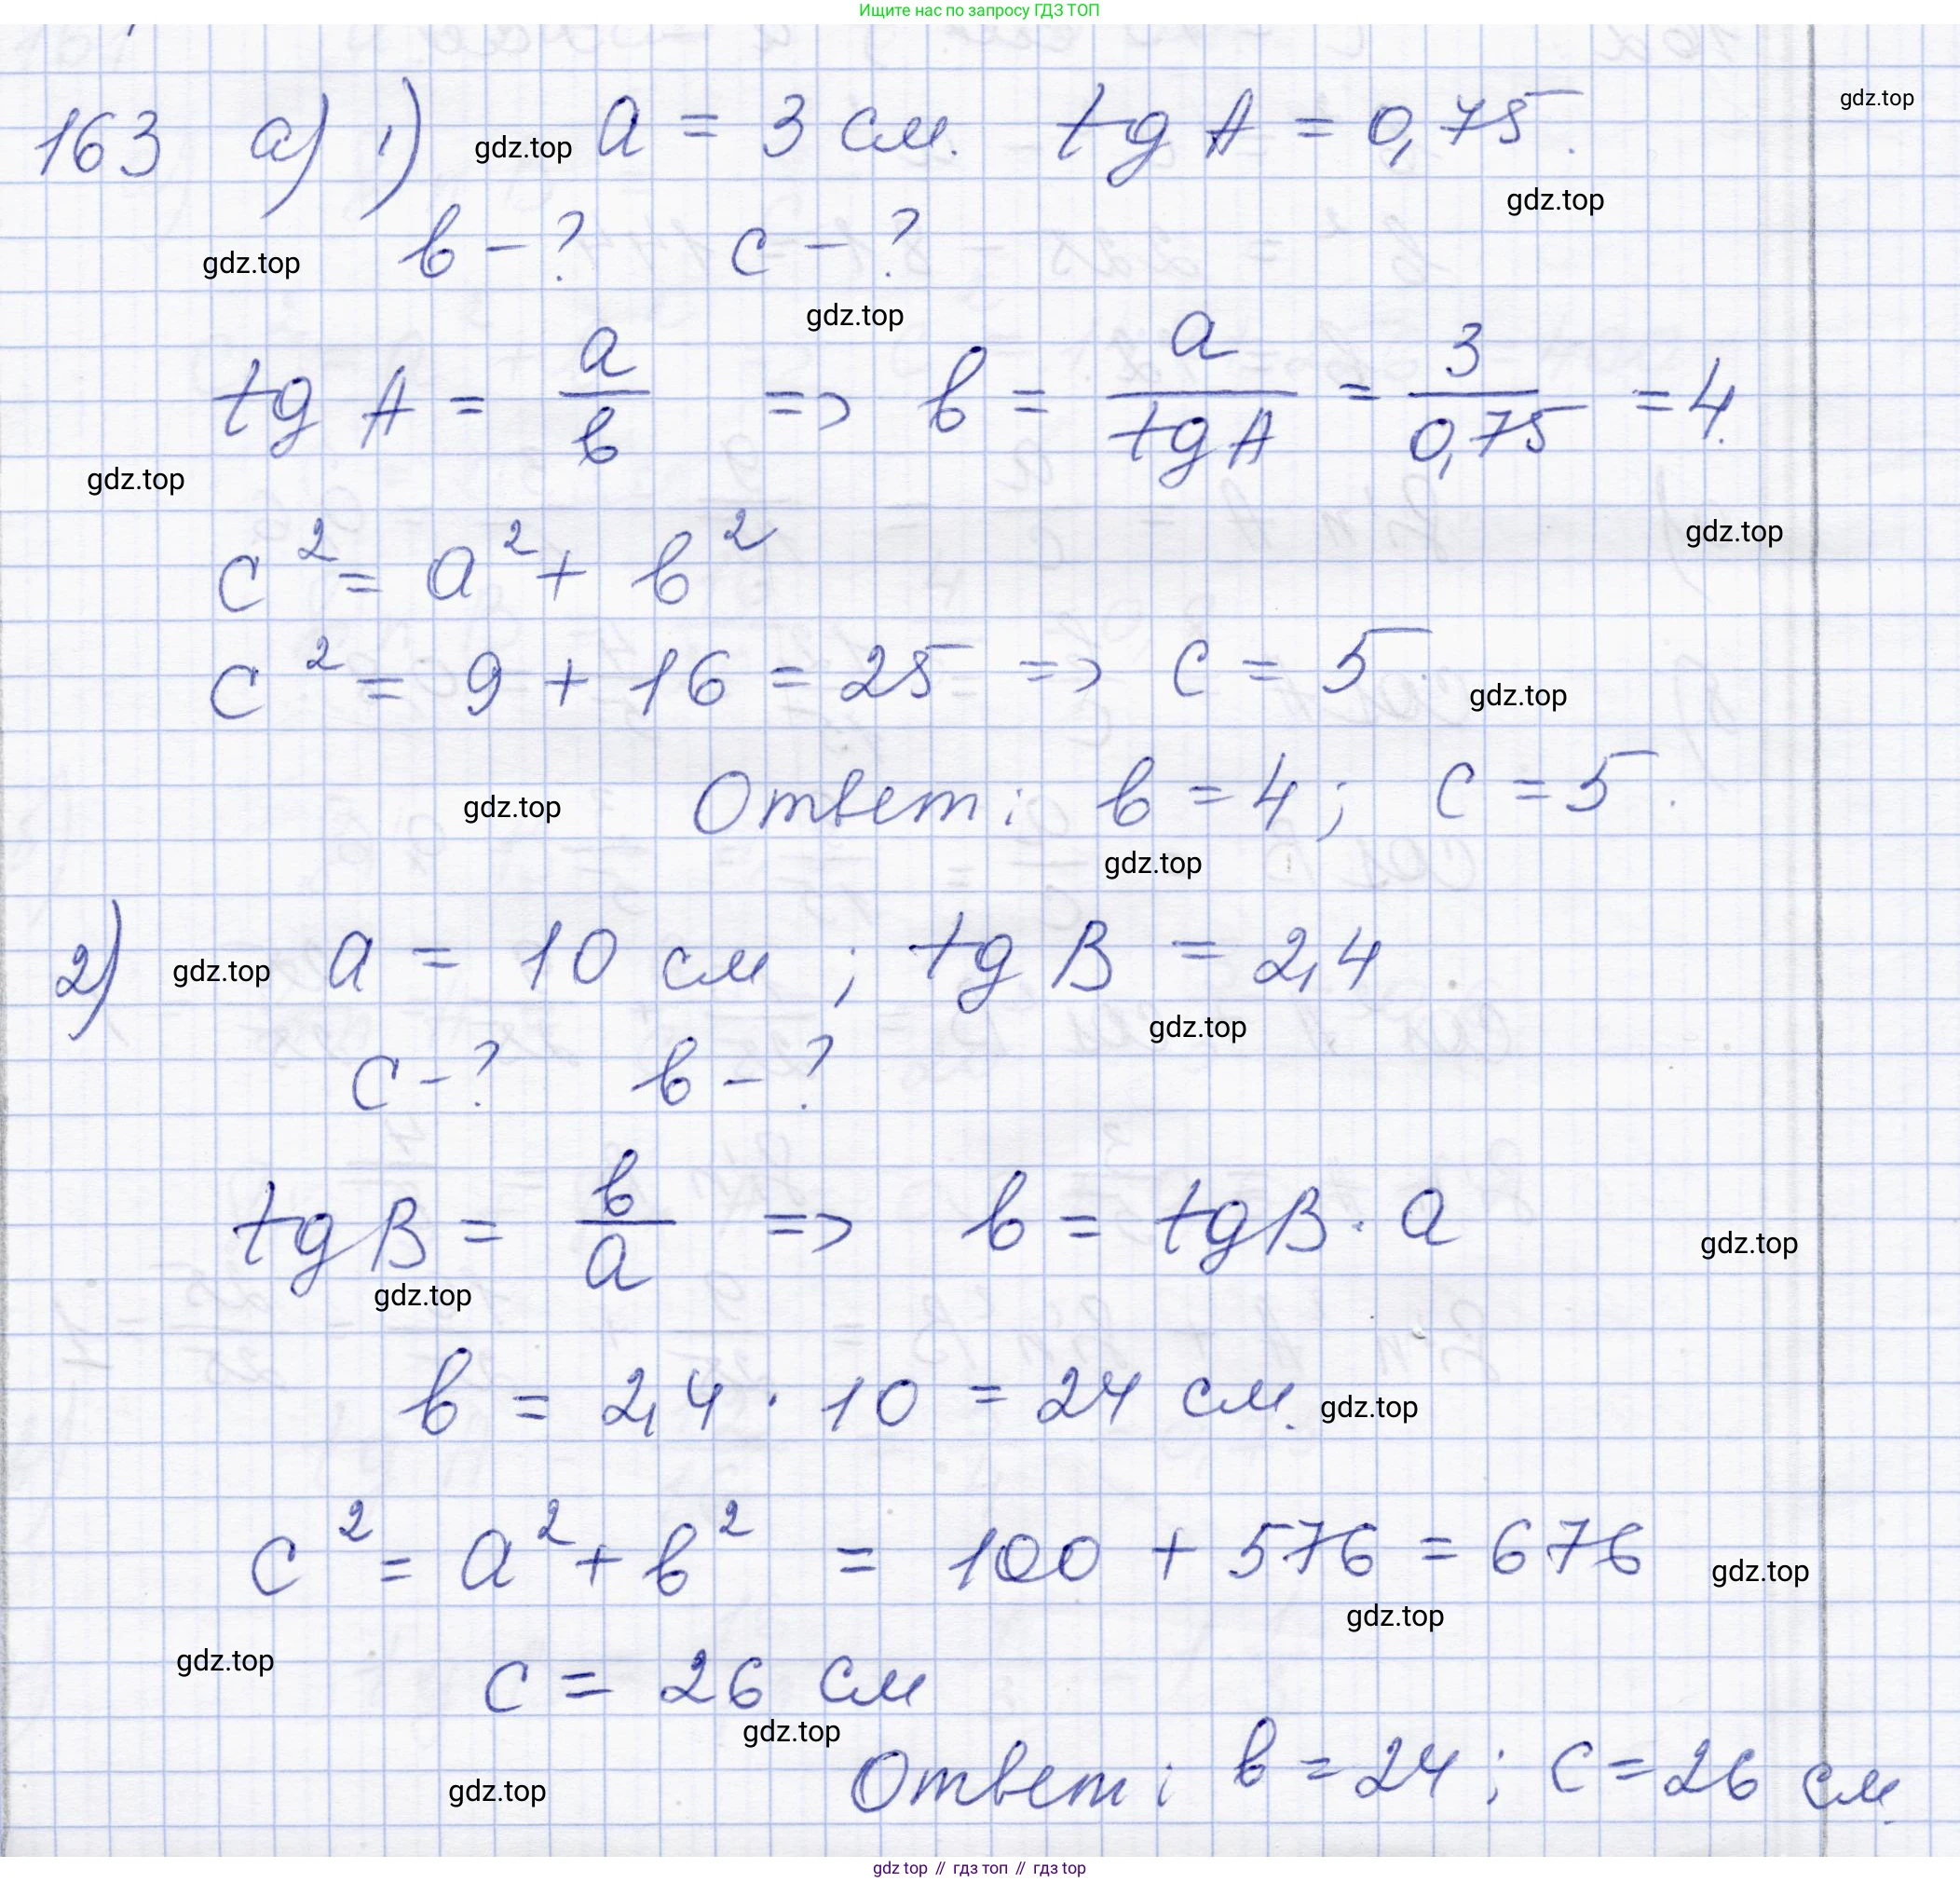 Ищите нас по запросу ГДЗ ТОП
163 а) 1) gdz.top a = 3 см. tg A = 0,75. gdz.top
gdz.top
gdz.top b - ? c - ?
gdz.top
tg A = a/b => b = a/tg A = 3/0,75 = 4.
gdz.top
c² = a² + b² gdz.top
c² = 9 + 16 = 25 => c = 5. gdz.top
gdz.top Ответ: b = 4; c = 5.
gdz.top
2) gdz.top a = 10 см; tg B = 2,4
gdz.top
c - ? b - ?
tg B = b/a => b = tg B · a gdz.top
gdz.top
b = 2,4 · 10 = 24 см. gdz.top
c² = a² + b² = 100 + 576 = 676 gdz.top
gdz.top
gdz.top c = 26 см
gdz.top
gdz.top Ответ: b = 24; c = 26 см.
gdz top // гдз топ // гдз top